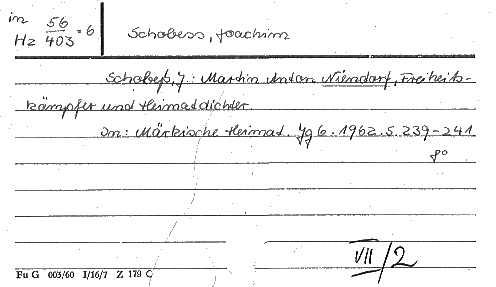 in 56
Hz 403 = 6
Schobess, Joachim
Schobeß, J.: Martin Anton Niendorf, Freiheits-
kämpfer und Heimatdichter.
In: Märkische Heimat. Jg 6. 1962. S. 239-241
8°
VII/2
Fu G 003/60 I/16/7 Z 179 C